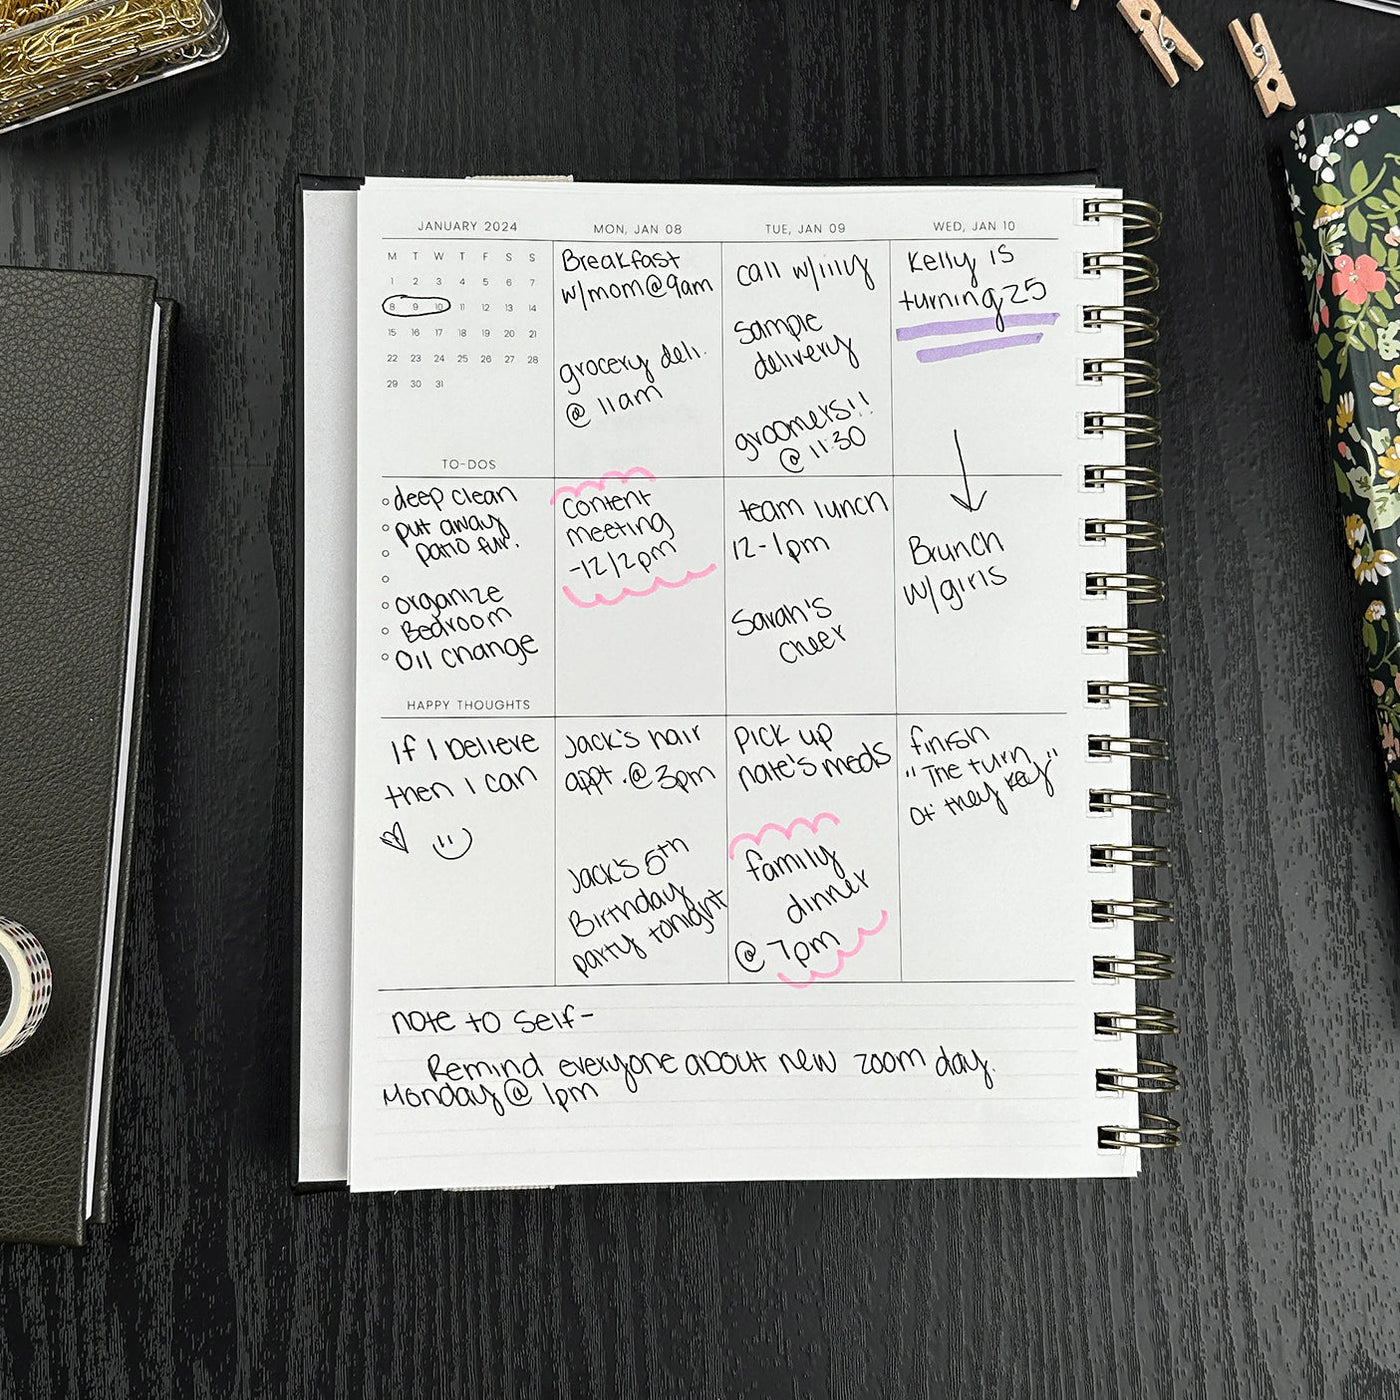 JANUARY 2024
M T W T F S S
1 2 3 4 5 6 7
8 9 10 11 12 13 14
15 16 17 18 19 20 21
22 23 24 25 26 27 28
29 30 31
TO-DOS
deep clean
put away
patio fur.
organize
Bedroom
Oil change
HAPPY THOUGHTS
If I believe
then I can
MON, JAN 08
Breakfast
w/mom@9am
grocery deli.
@ 11am
content
meeting
-12/2pm
Jack's hair
appt.@3pm
Jack's 5th
Birthday
party tonight
TUE, JAN 09
call w/lilly
Sample
delivery
groomers!!
@ 11:30
team lunch
12-1pm
Sarah's
cheer
Pick up
nate's meds
family
dinner
@ 7pm
WED, JAN 10
Kelly is
turning 25
Brunch
w/girls
finish
"The turn
of they key"
note to self-
Remind everyone about new zoom day.
Monday@ 1pm